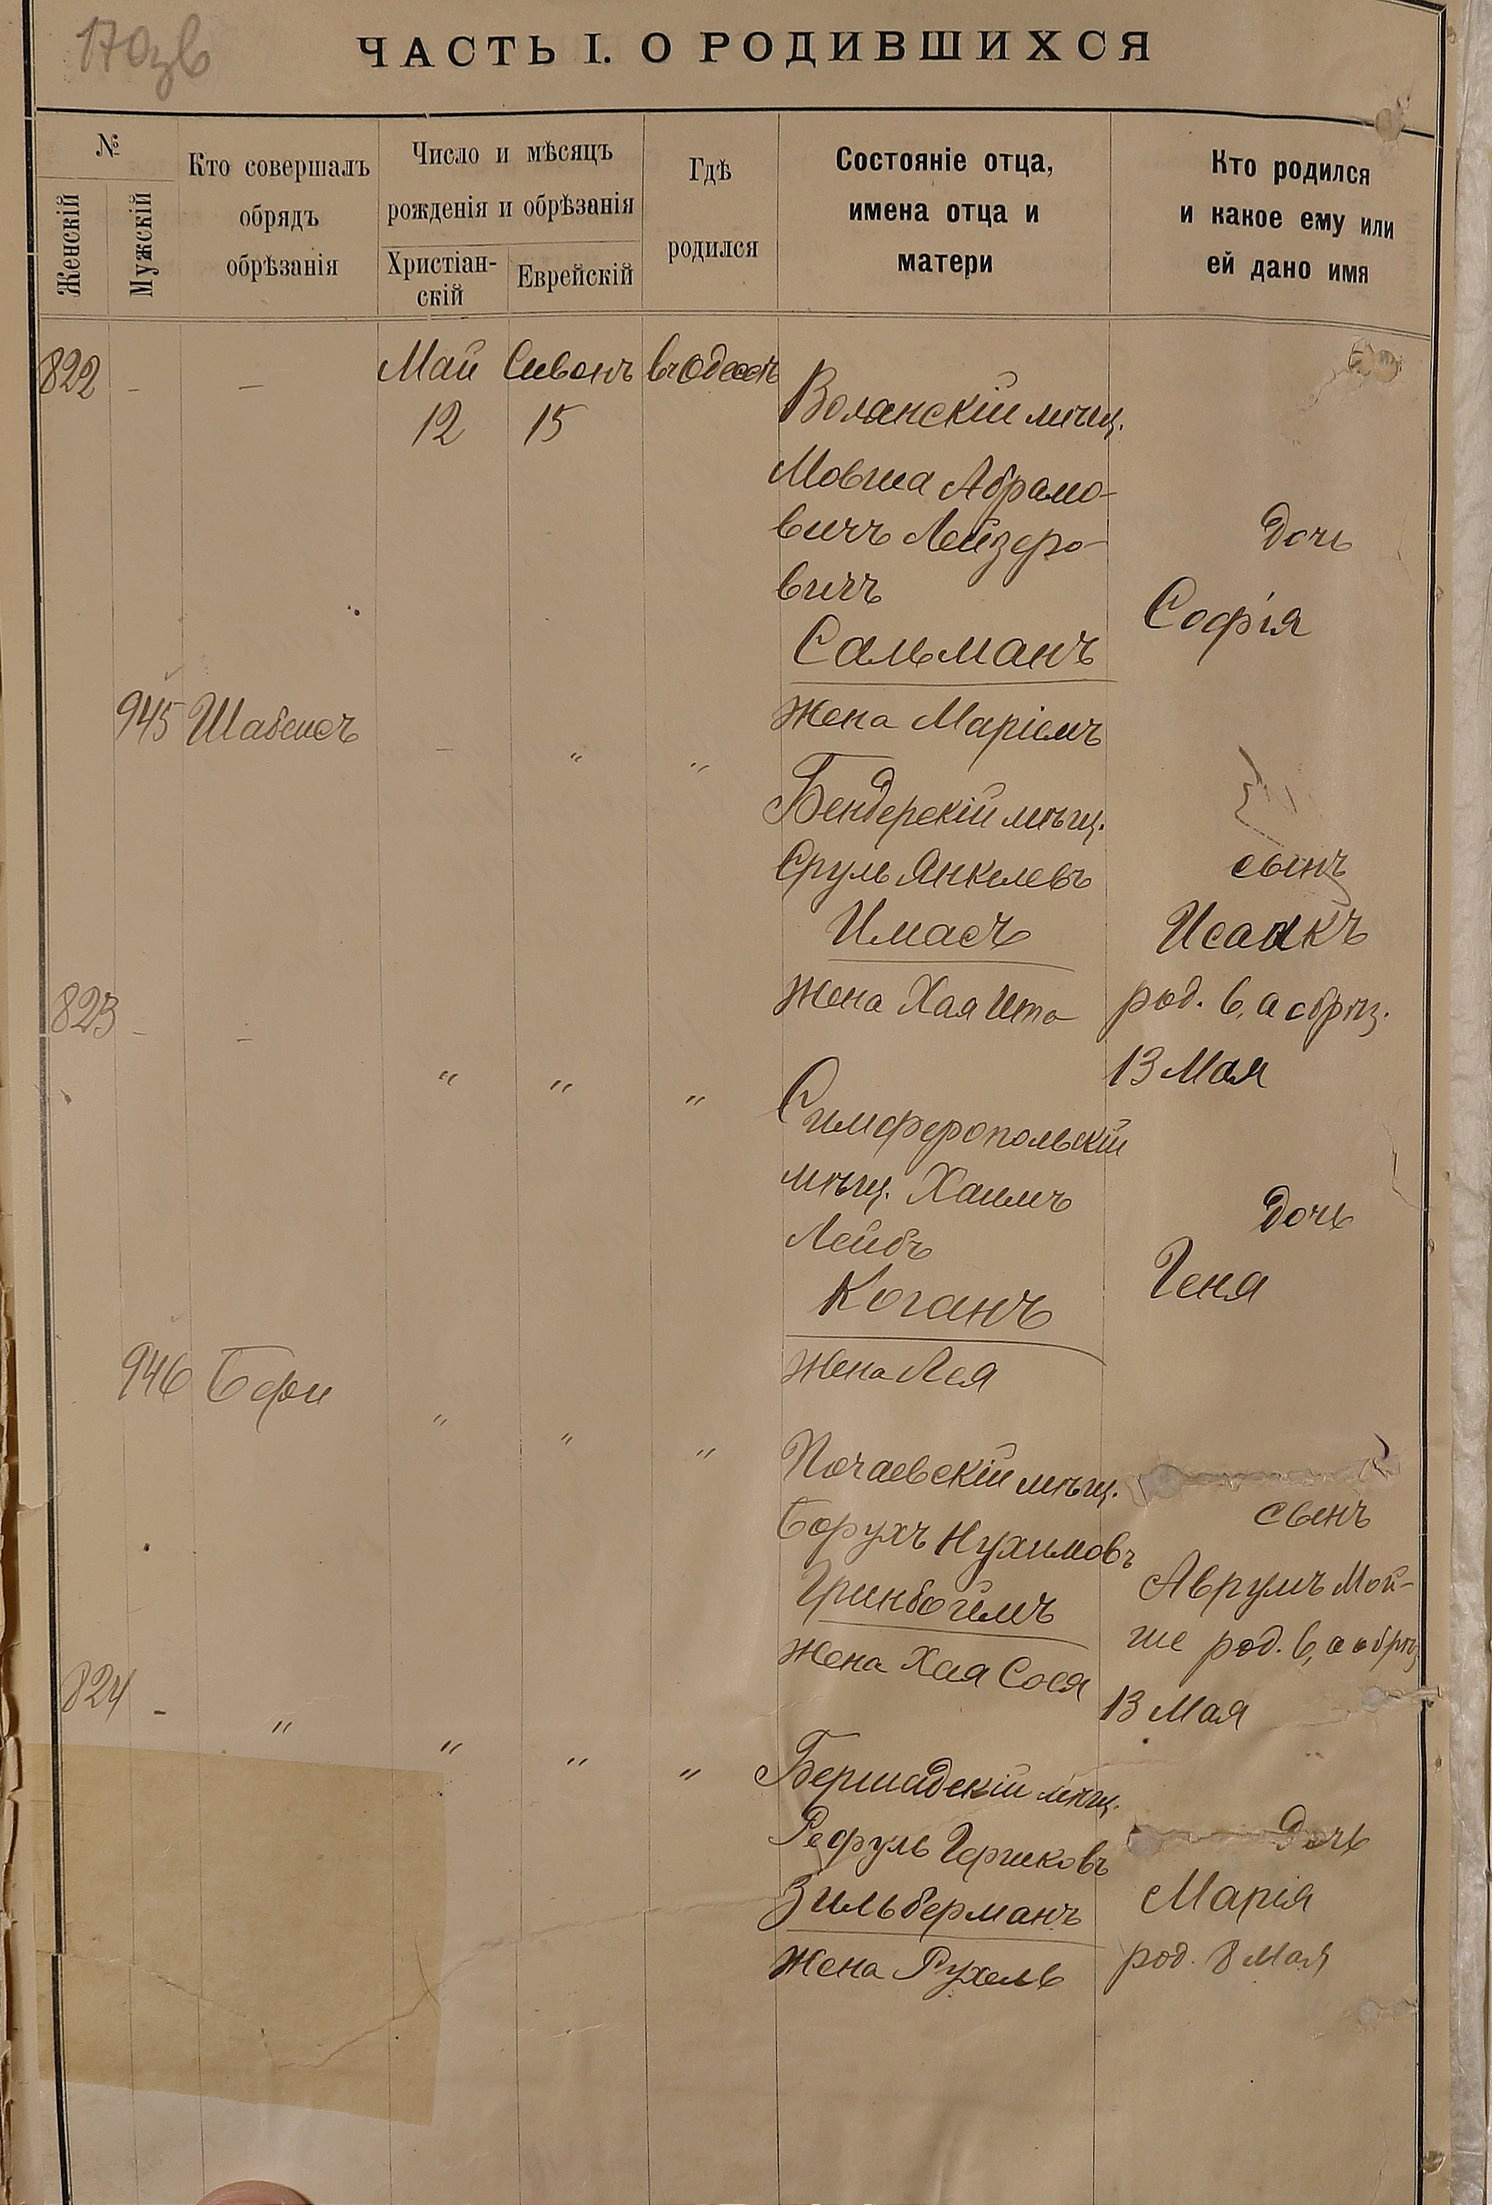 170зв
ЧАСТЬ I. О РОДИВШИХСЯ
№
Женскій
Мужскій
Кто совершалъ
обрядъ
обрѣзанія
Число и мѣсяцъ
рожденія и обрѣзанія
Христіан-
скій
Еврейскій
Гдѣ
родился
Состояніе отца,
имена отца и
матери
Кто родился
и какое ему или
ей дано имя
822 - - Май Сивонъ въ Одессѣ
12 15
мѣщ.
Мовша Абрамо-
вичъ Лейзеро-
вичъ
Сальманъ
Жена Маріемъ
Дочь
Софія
945 Шабепсъ - " "
Бендерскій мѣщ.
Сруль Янкелевъ
Имасъ
Жена Хая Ита
сынъ
Исаакъ
род. 6, а обрѣз.
13 Мая
823 - - " " "
Симферопольскій
мѣщ. Хаимъ
Лейбъ
Коганъ
Жена Лея
Дочь
Геня
946 " " "
Почаевскій мѣщ.
Борухъ Нухимовъ
Гринбоймъ
Жена Хая Сося
сынъ
Аврумъ Мой-
ше род. 6, а обрѣз
13 Мая
824 - " " " "
Бершадскій мѣщ.
Рефуль Гершковъ
Зильберманъ
Жена Рухель
Дочь
Марія
род. 8 Мая